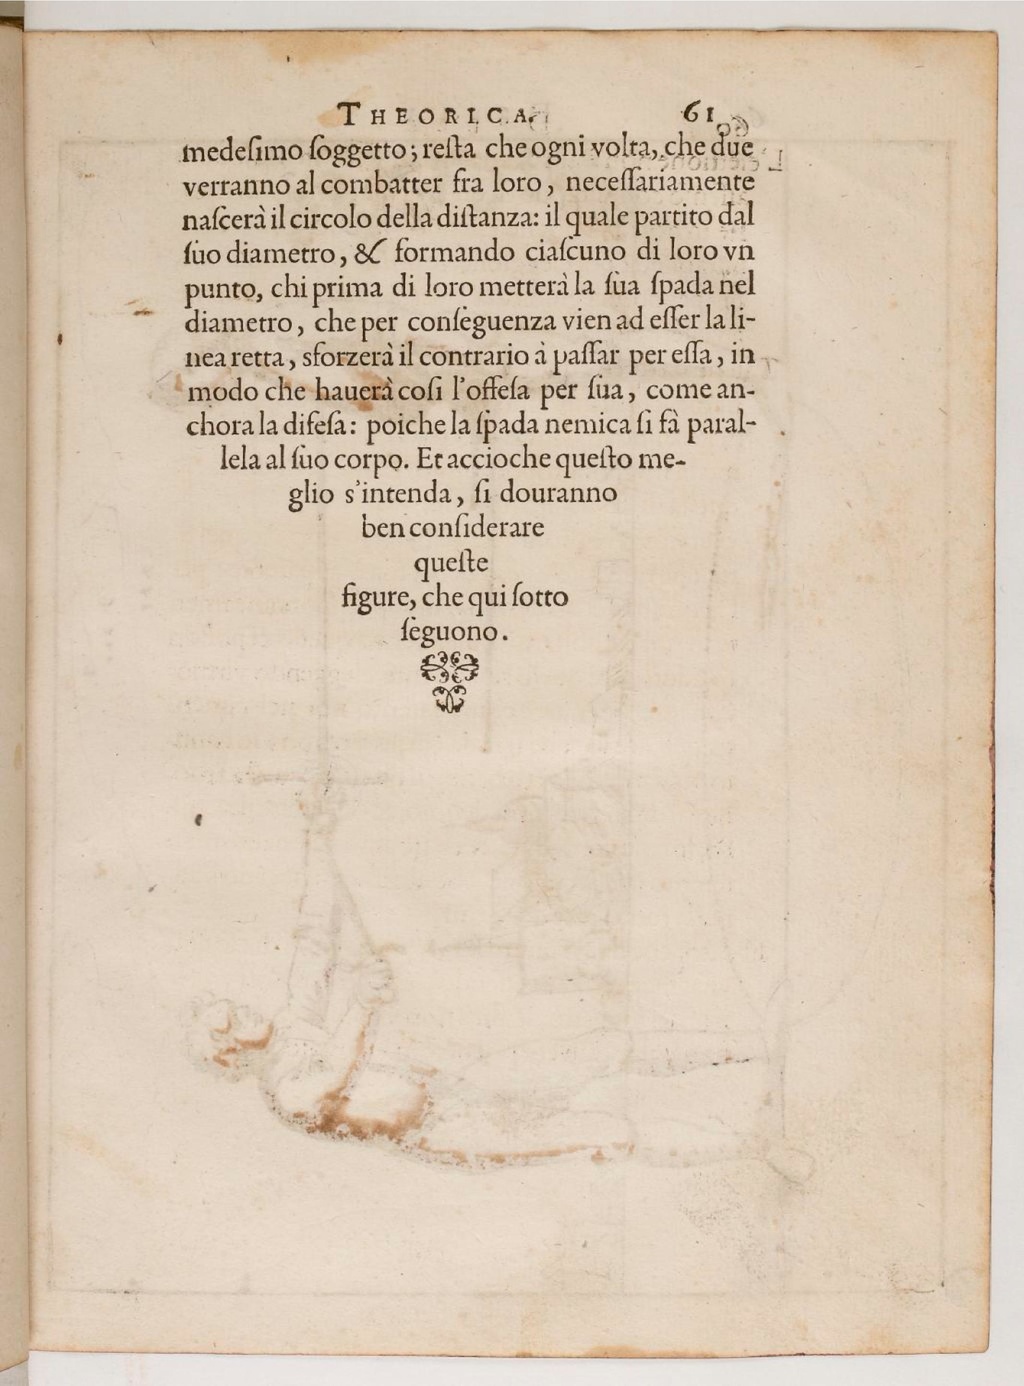 THEORICA. 61
medeſimo ſoggetto; reſta che ogni volta, che due
verranno al combatter fra loro, neceſſariamente
naſcerà il circolo della diſtanza: il quale partito dal
ſuo diametro, & formando ciaſcuno di loro vn
punto, chi prima di loro metterà la ſua ſpada nel
diametro, che per conſeguenza vien ad eſſer la li-
nea retta, sforzerà il contrario à paſſar per eſſa, in
modo che hauerà coſi l'offeſa per ſua, come an-
chora la difeſa: poiche la ſpada nemica ſi fà paral-
lela al ſuo corpo. Et accioche queſto me-
glio s'intenda, ſi douranno
ben conſiderare
queſte
figure, che qui ſotto
ſeguono.